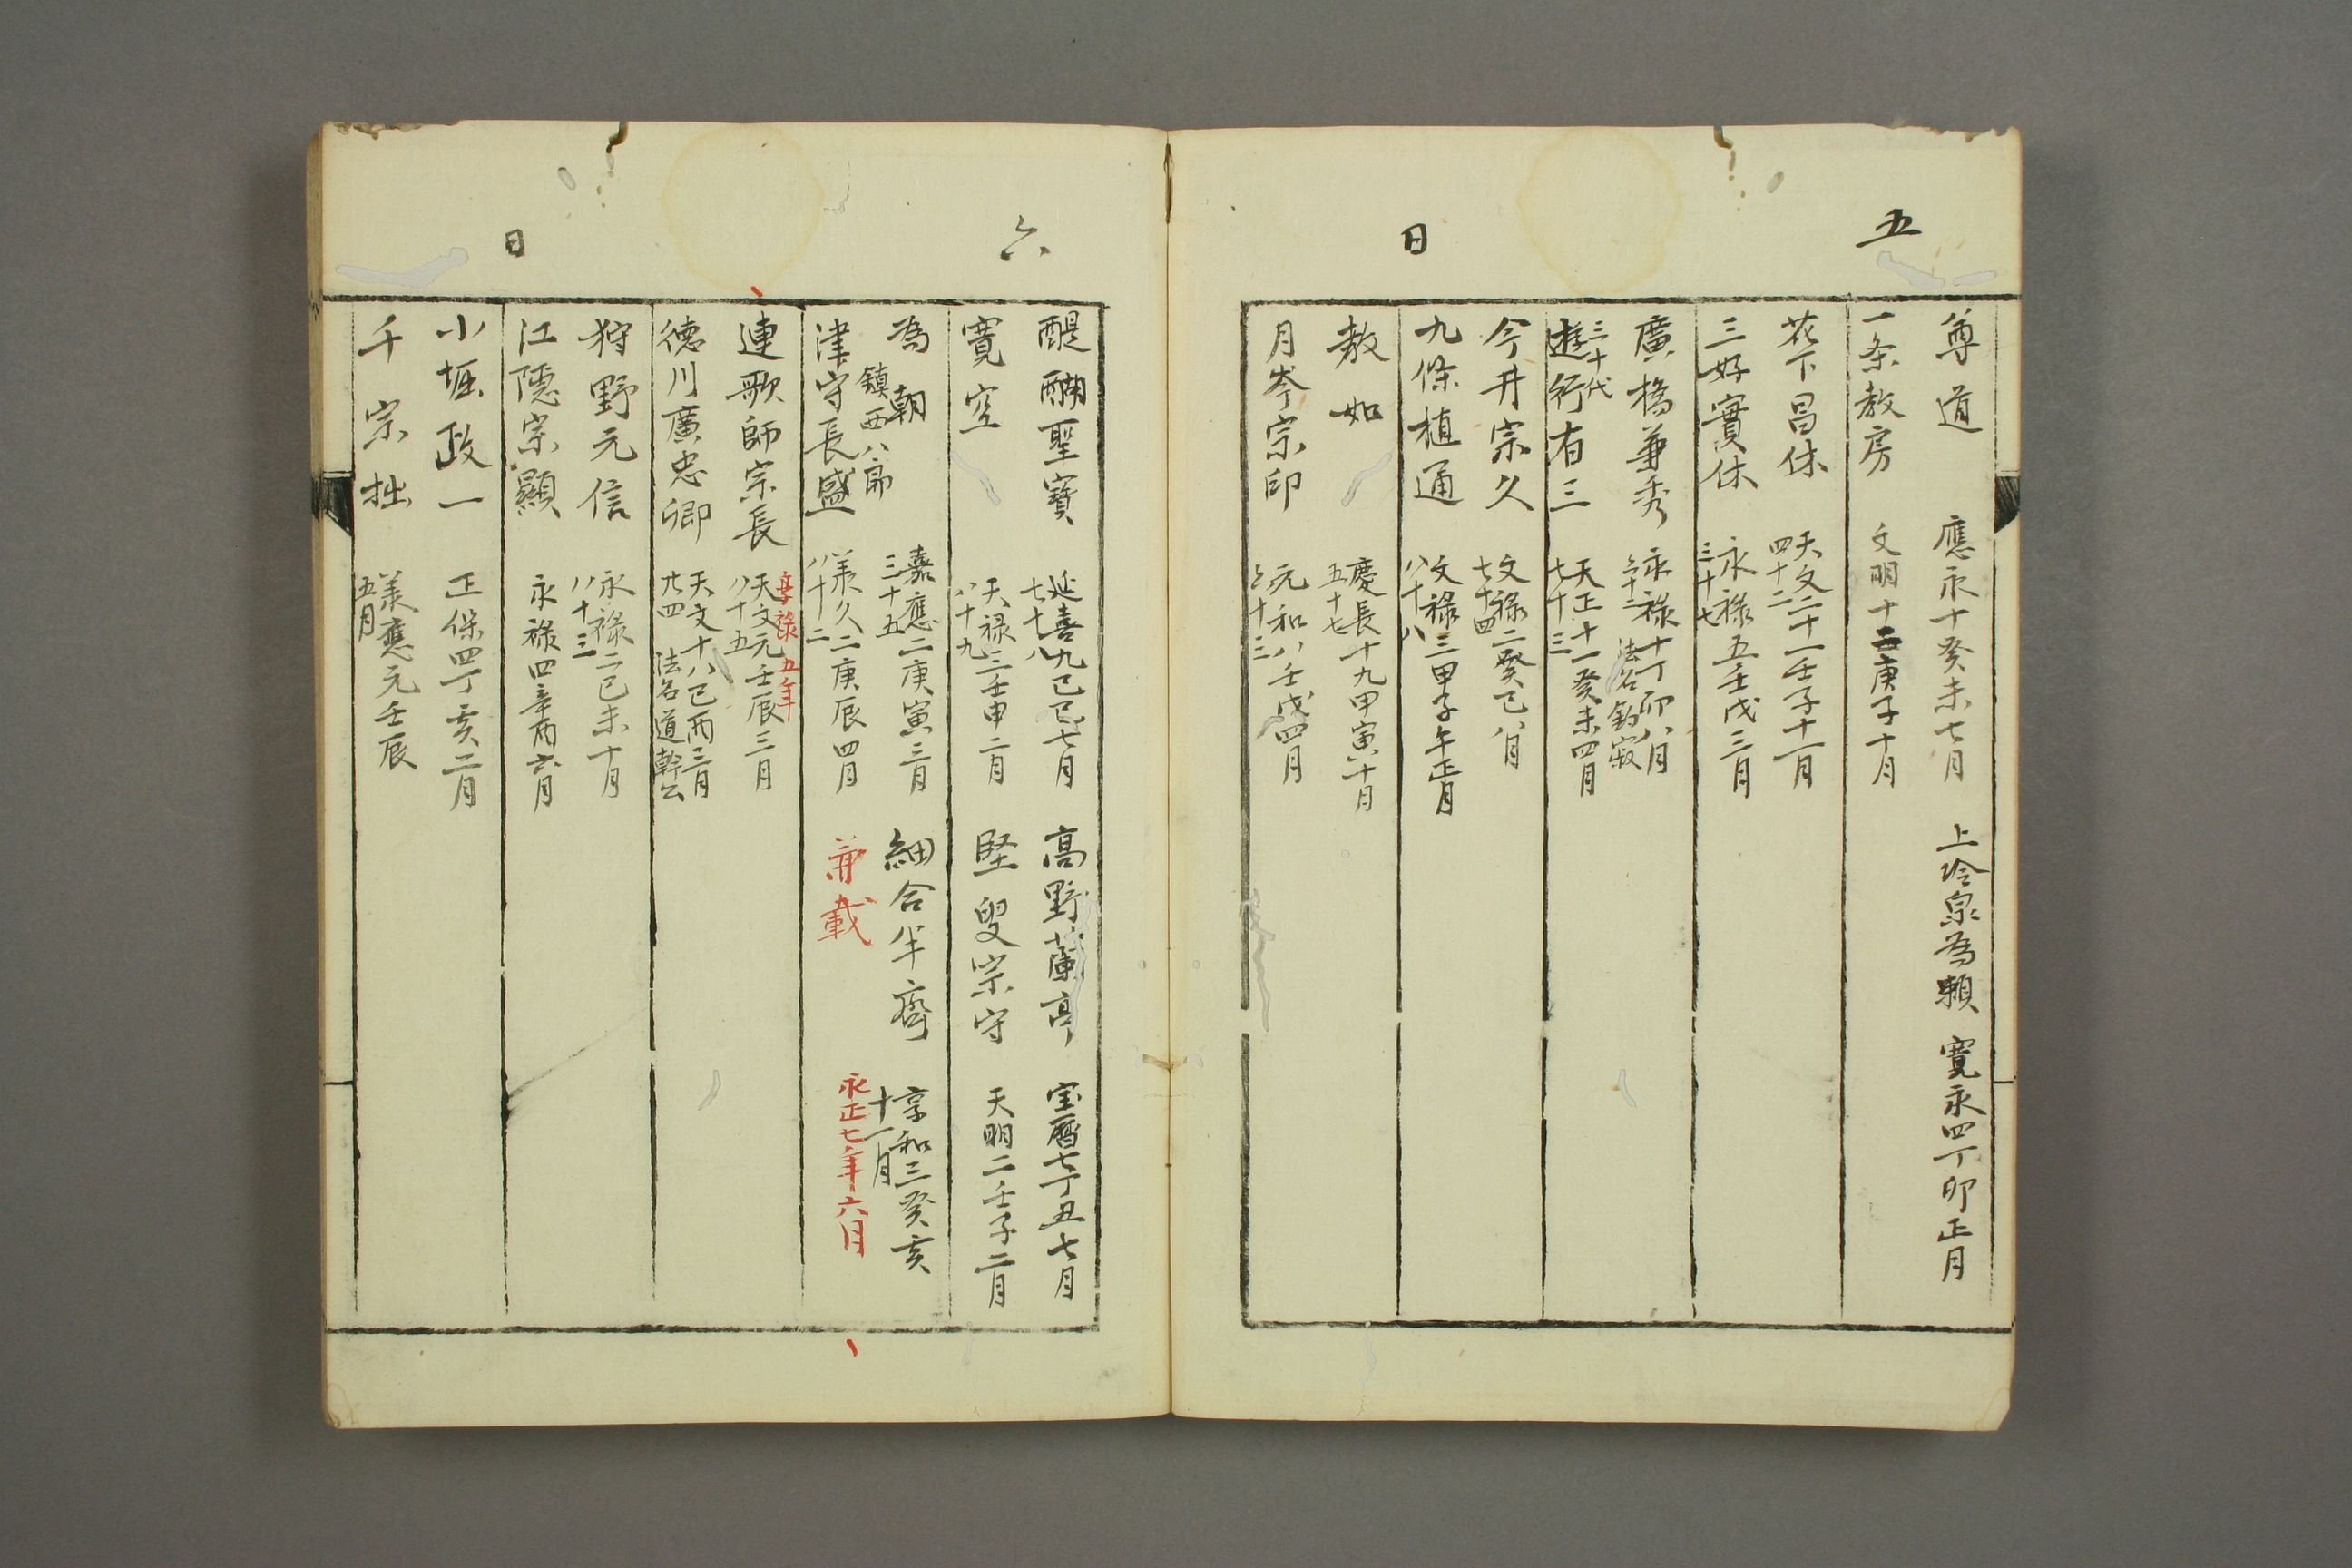 五日
尊道 應永十癸未七月
上冷泉為頼 寛永四丁卯正月
一条教房 文明十二庚子十月
花下昌休 天文二十一壬子十一月
四十二
三好實休 永禄五壬戌三月
三十七
廣橋兼秀 永禄十丁卯八月
六十二 法名釣寂
三十代
遊行有三 天正十一癸未四月
七十三
今井宗久 文禄二癸巳八月
七十四
九條植通 文禄三甲子午正月
八十八
教如 慶長十九甲寅十月
五十七
月岑宗印 元和八壬戌四月
六十三
六日
醍醐聖寶 延喜九己巳七月
七十八
高野蘭亭 宝暦七丁丑七月
寛空 天禄三壬申二月
八十九
堅叟宗守 天明二壬子二月
為朝 嘉應二庚寅三月
鎮西八郎 三十五
細合半齋 享和三癸亥
十一月
津守長盛 羕久二庚辰四月
八十二
兼載 永正七年六月
享禄五年
連歌師宗長 天文元壬辰三月
八十五
徳川廣忠卿 天文十八己酉三月
廿四 法名道幹公
狩野元信 永禄二己未十月
八十三
江隱宗顯 永禄四辛酉六月
小堀政一 正保四丁亥二月
千宗拙 羕應元壬辰
五月